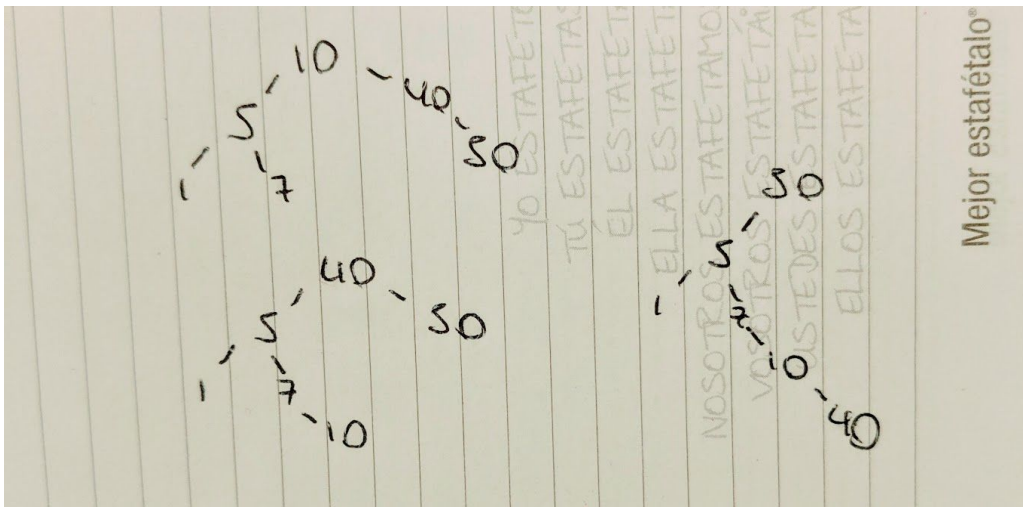 10
40
5
50
1
7
40
5
50
1
7
10
50
5
1
7
10
40
YO ESTAFETO
TÚ ESTAFETAS
ÉL ESTAFET
ELLA ESTAFET
NOSOTROS ESTAFETAMO
VOSOTROS ESTAFETÁI
USTEDES ESTAFETA
ELLOS ESTAFETA
Mejor estafétalo®